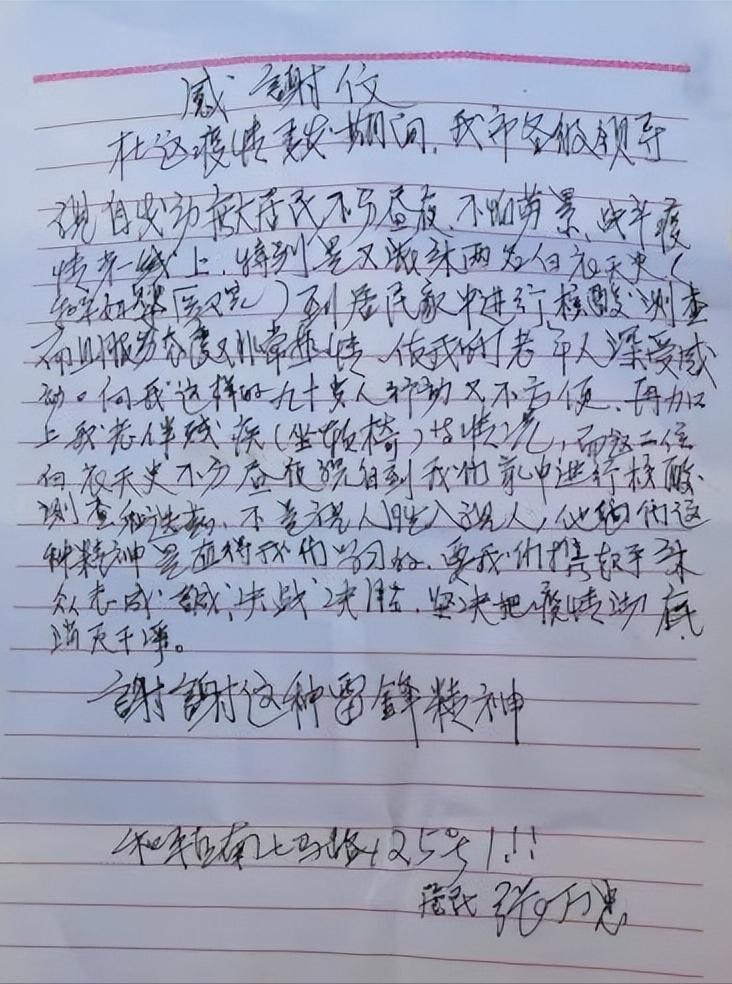 感謝信
在这疫情暴发期间，我市各级领导
亲自发动广大居民不分昼夜、不怕劳累、战斗疫
情第一线上，特别是又派来两名白衣天史（
）到居民家中进行核酸测查
而且服务态度又非常热情，使我们老年人深受感
动。向我这样的九十岁人行动又不方便、再加
上我老伴残疾（坐轮椅）情况，而这二位
白衣天史不分昼夜亲自到我们家中进行核酸
测查和，不是亲人胜入亲人，他们这
种精神是值得我们学习的，要我们携起手来
众志成誠，决战决胜，坚决把疫情彻底
消灭干净。
謝謝这种雷鋒精神
和平区南七马路125号1!!!
居民 张万忠